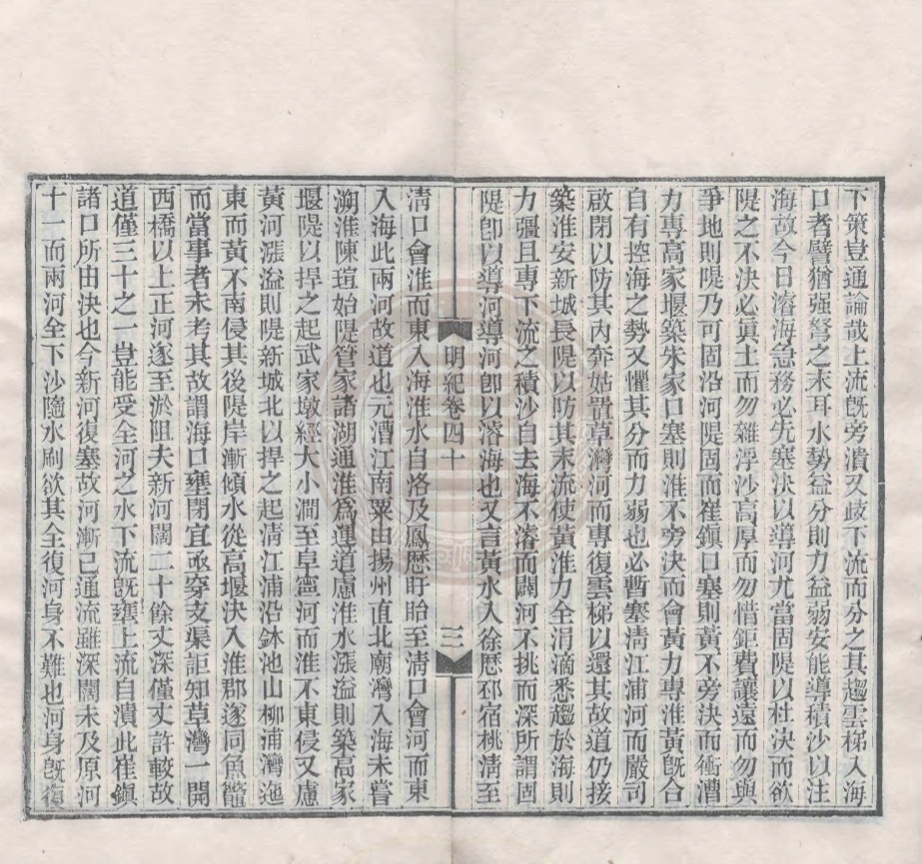 下策豈通論哉上流既旁潰又歧下流而分之其趨雲梯入海
口者譬猶强弩之末耳水勢益分則力益弱安能導積沙以注
海故今日濬海急務必先塞決以導河尤當固隄以杜決而欲
隄之不決必眞土而勿雜浮沙高厚而勿惜鉅費讓遠而勿與
爭地則隄乃可固沿河隄固而崔鎭口塞則黃不旁決而衝漕
力專高家堰築朱家口塞則淮不旁決而會黃力專淮黃既合
自有控海之勢又懼其分而力弱也必暫塞淸江浦河而嚴司
啟閉以防其內奔姑置草灣河而專復雲梯以還其故道仍接
築淮安新城長隄以防其末流使黃淮力全涓滴悉趨於海則
力彊且專下流之積沙自去海不濬而闢河不挑而深所謂固
隄卽以導河導河卽以濬海也又言黃水入徐歷邳宿桃淸至
明紀卷四十
三
淸口會淮而東入海淮水自洛及鳳歷盱眙至淸口會河而東
入海此兩河故道也元漕江南粟由揚州直北廟灣入海未嘗
溯淮陳瑄始隄管家諸湖通淮爲運道慮淮水漲溢則築高家
堰隄以捍之起武家墩經大小澗至阜寧河而淮不東侵又慮
黃河漲溢則隄新城北以捍之起淸江浦沿鉢池山柳浦灣迤
東而黃不南侵其後隄岸漸傾水從高堰決入淮郡遂同魚鼈
而當事者未考其故謂海口壅閉宜亟穿支渠詎知草灣一開
西橋以上正河遂至淤阻夫新河闊二十餘丈深僅丈許較故
道僅三十之一豈能受全河之水下流既壅上流自潰此崔鎭
諸口所由決也今新河復塞故河漸已通流雖深闊未及原河
十一而兩河全下沙隨水刷欲其全復河身不難也河身既復